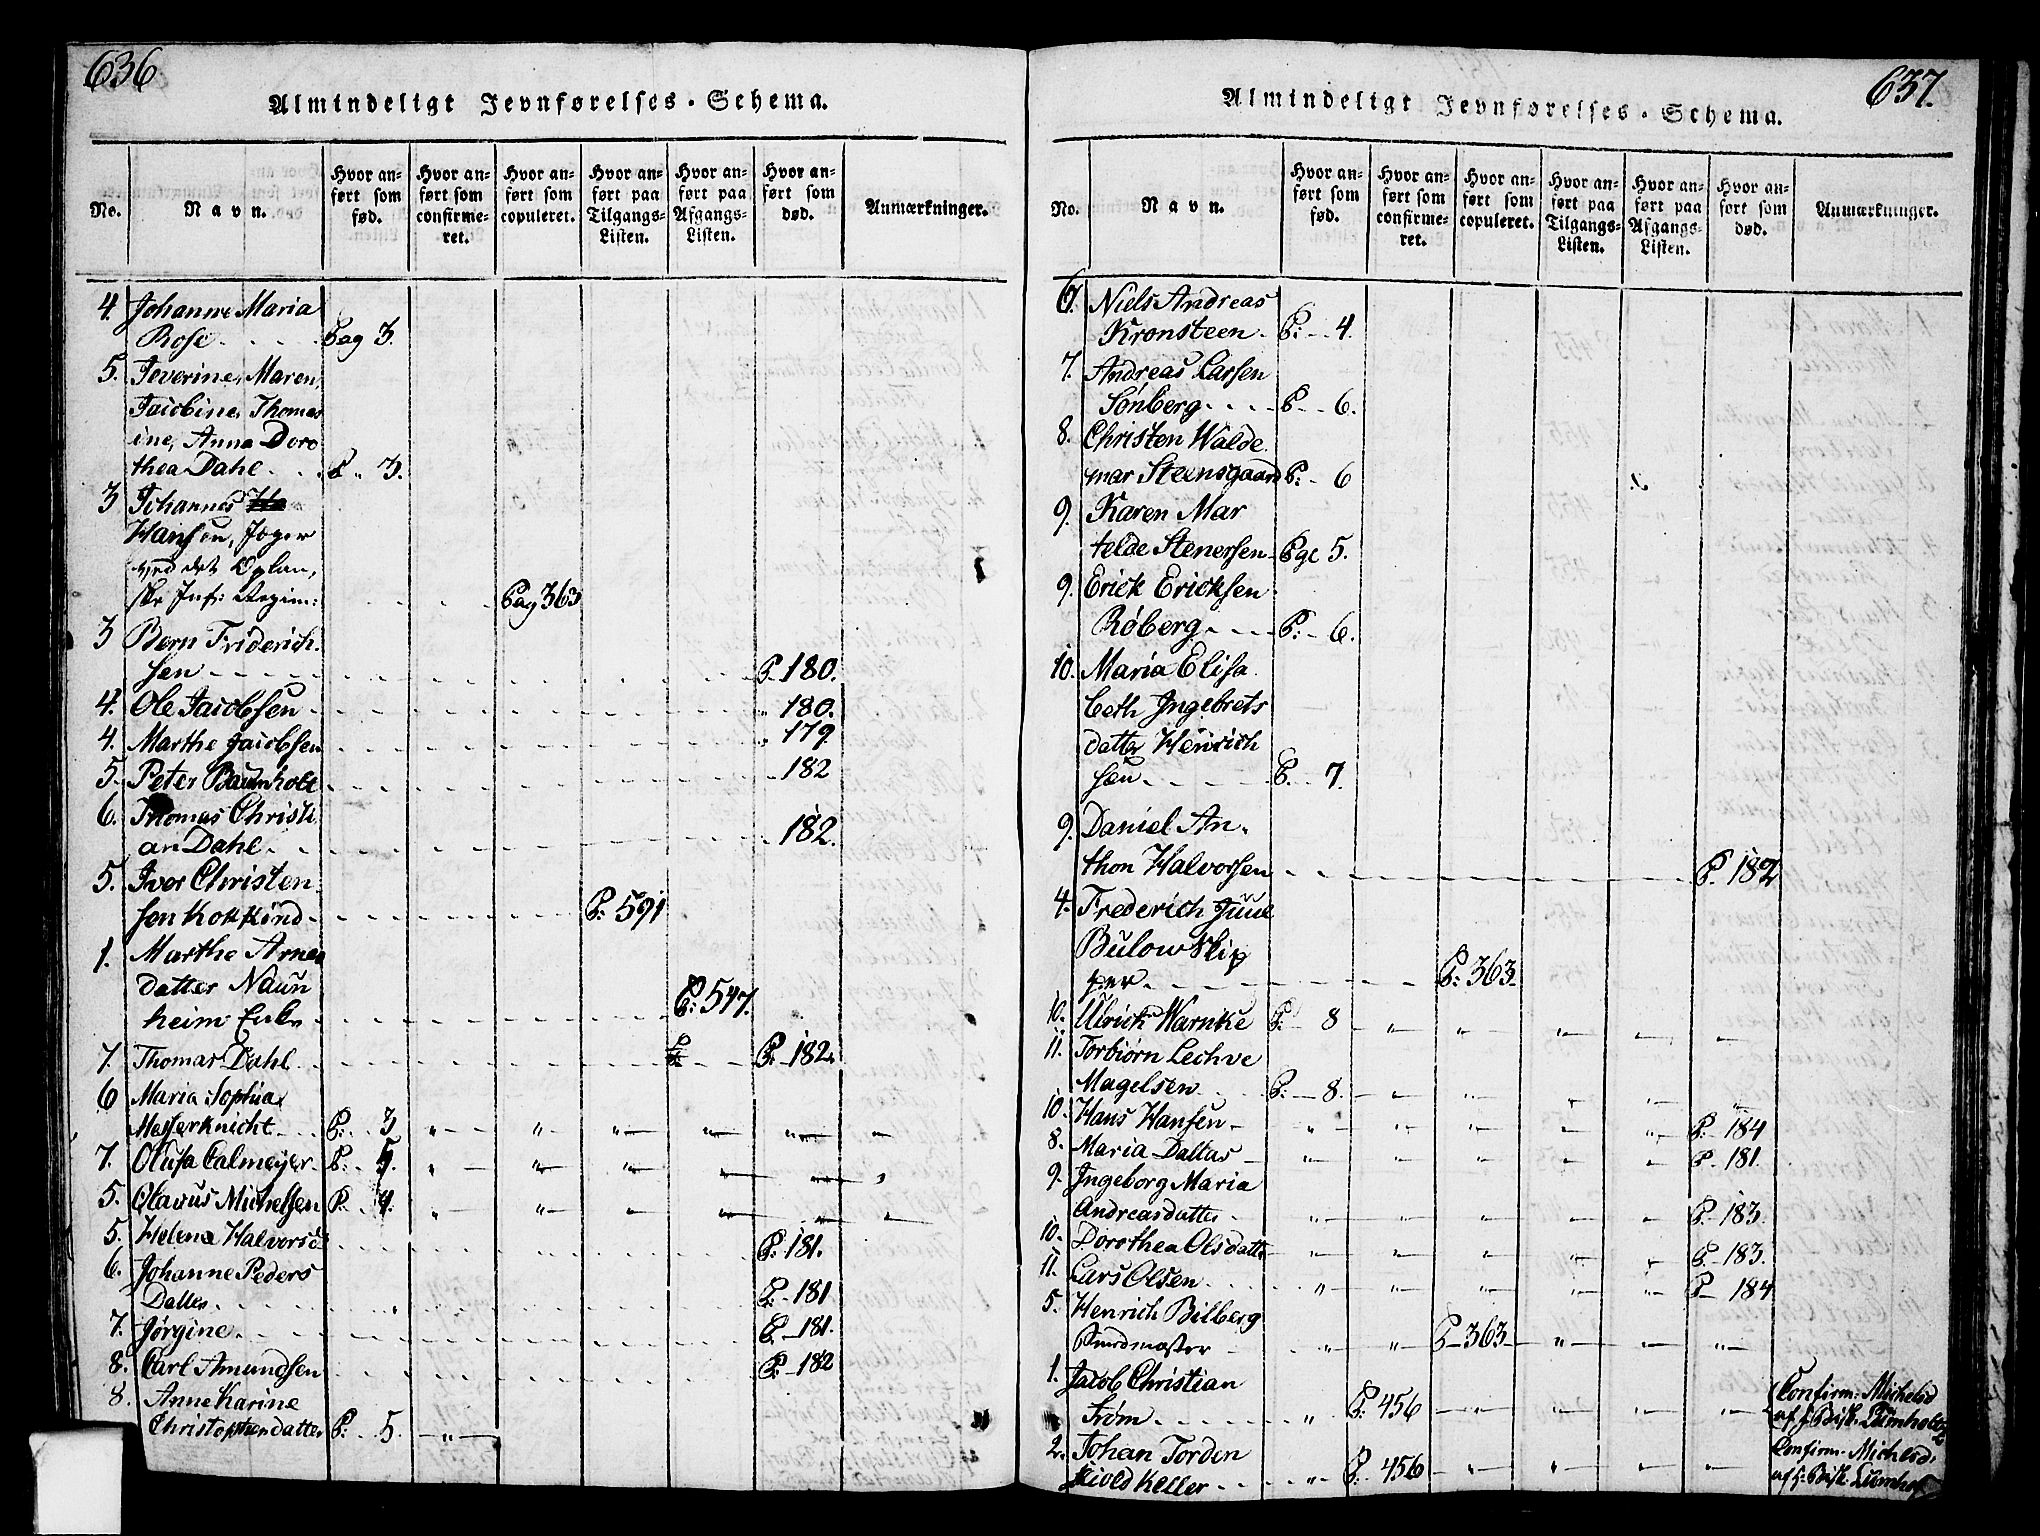 636
Almindeligt Jevnførelses-Schema.
No. Navn. Hvor anført som fød. Hvor anført som confirmeret. Hvor anført som copuleret. Hvor anført paa Tilgangs-Listen. Hvor anført paa Afgangs-Listen. Hvor anført som død. Anmærkninger.
4. Johanne Maria
Rose Pag 3.
5. Severine, Maren,
Jacobine, Thomas
ine, Anna Doro
thea Dahl P. 3.
3 Johannes
Hansen, Jæger
ved det Oplan,
ske Inf: Regim: Pag 363
3 Bern Friderich
sen P. 180.
4. Ole Jacobsen 180.
4. Marthe Jacobsen 179
5. Peter Baumholt 182
6. Thomas Christi
an Dahl 182.
5. Iver Christen
sen Kokkind P: 591
1. Marthe Arne
datter Naun
heim Enke P: 547.
7. Thomas Dahl P. 182.
6 Maria Sophia
Messerknicht P: 3
7. Olufa Calmeyer P: 5.
5. Olavus Michelsen P. 4.
5. Helena Halvorsd P: 181.
6. Johanne Peders
Datter P. 181
7. Jørgine P. 181.
8. Carl Amundsen P. 182
8. Anne Karine
Christophersdatter P. 5.
637.
Almindeligt Jevnførelses-Schema.
No. Navn. Hvor anført som fød. Hvor anført som confirmeret. Hvor anført som copuleret. Hvor anført paa Tilgangs-Listen. Hvor anført paa Afgangs-Listen. Hvor anført som død. Anmærkninger.
6. Niels Andreas
Kronsteen P: 4.
7. Andreas Larsen
Sønberg P 6.
8. Christen Walde
mar Steensgaard P: 6
9. Karen Mar
telde Stenersen Pge 5.
9. Erick Ericksen
Røberg P: 6.
10. Maria Elisa
beth Ingebrets
datter Henrich
sen P. 7.
9. Daniel An
thon Halvorsen P. 182
4. Frederich Juul
Bülow Skip
per P: 363
10. Ulrich Warnke P. 8
11. Torbiørn Lechve
Magelsen P: 8.
10. Hans Hansen P. 184
8. Maria Daltas P. 181.
9. Ingeborg Maria
Andreasdatter P. 183.
10. Dorothea Olsdatter P. 183.
11. Lars Olsen P 184
5. Henrich Bilberg
Bundmaster P 363
1. Jacob Christian
Frøm P. 456 Confirm: Michelsd
af H: Bisk. Lumholtz
2. Johan Torden
skiold Keller P. 456 Confirm. Michelsd.
af H: Bisk. Lumholtz